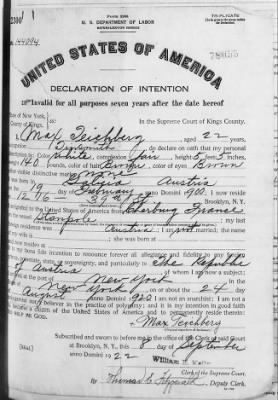 Form 2203
U. S. DEPARTMENT OF LABOR
NATURALIZATION SERVICE
TRIPLICATE
UNITED STATES OF AMERICA
DECLARATION OF INTENTION
Invalid for all purposes seven years after the date hereof
of New York,
of Kings, ss:
In the Supreme Court of Kings County.
Max Teichberg, aged 22 years,
occupation declare on oath that my personal
description is: Color White, complexion fair, height 5 feet 5 inches,
weight 140 color of hair Brown color of eyes Brown
visible distinctive marks none
Galicia Austria
on the 19 day of February anno Domini 1900. I now reside
12 39th St Brooklyn, N. Y.
to the United States of America from Cherbourg France
vessel my last
residence was Austria I am not married; the name
she was born at
and now resides at
It is my bona fide intention to renounce forever all allegiance and fidelity to any foreign
state, or sovereignty, and particularly to The Republic
of Austria of whom I am now a subject;
New York in the
New York on or about the 24 day
August anno Domini 1920. I am not an anarchist; I am not a
nor a believer in the practice of polygamy; and it is my intention in good faith
a citizen of the United States of America and to permanently reside therein:
HELP ME GOD.
Max Teichberg
Subscribed and sworn to before me in the office of the Clerk of said Court
at Brooklyn, N. Y., this 8 day of September
anno Domini 1922
[SEAL]
WILLIAM
Clerk of the Supreme Court.
By Thomas Deputy Clerk.